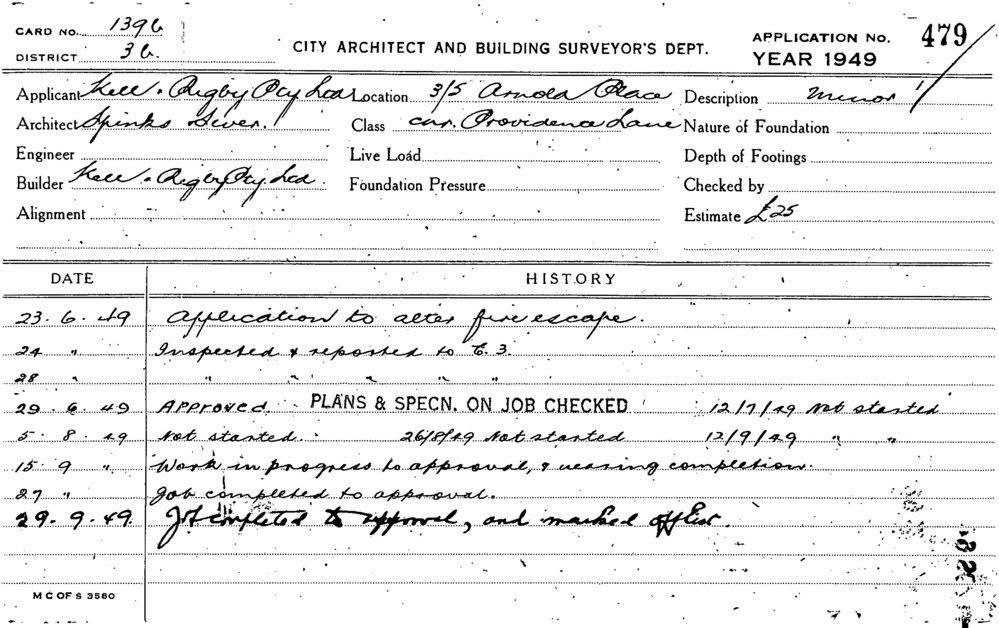 CARD NO. 1396
DISTRICT 36.
CITY ARCHITECT AND BUILDING SURVEYOR'S DEPT.
APPLICATION NO. 479/
YEAR 1949
Applicant Kell & Rigby Pty Ltd Location 3/5 Arnold Place Description Minor
Architect Spinks Class cnr. Providence Lane Nature of Foundation
Engineer Live Load Depth of Footings
Builder Kell & Rigby Pty Ltd. Foundation Pressure Checked by
Alignment Estimate £25
DATE HISTORY
23.6.49 Application to alter fire escape.
24 " Inspected & reported to
28 " " " " " "
29.6.49 Approved. PLANS & SPECN. ON JOB CHECKED 12/7/49 Not started
5.8.49 Not started. 26/8/49 Not started 12/9/49 " "
15.9 " Work in progress to approval, & nearing completion.
27 " Job completed to approval.
29.9.49. Job completed to approval, and marked off list.
M C OF S 3580